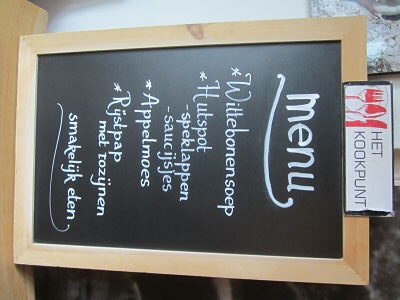 HET
KOOKPUNT
menu
* Wittebonensoep
* Hutspot
-speklappen
-saucijsjes
* Appelmoes
* Rijstpap
met rozijnen
smakelijk eten